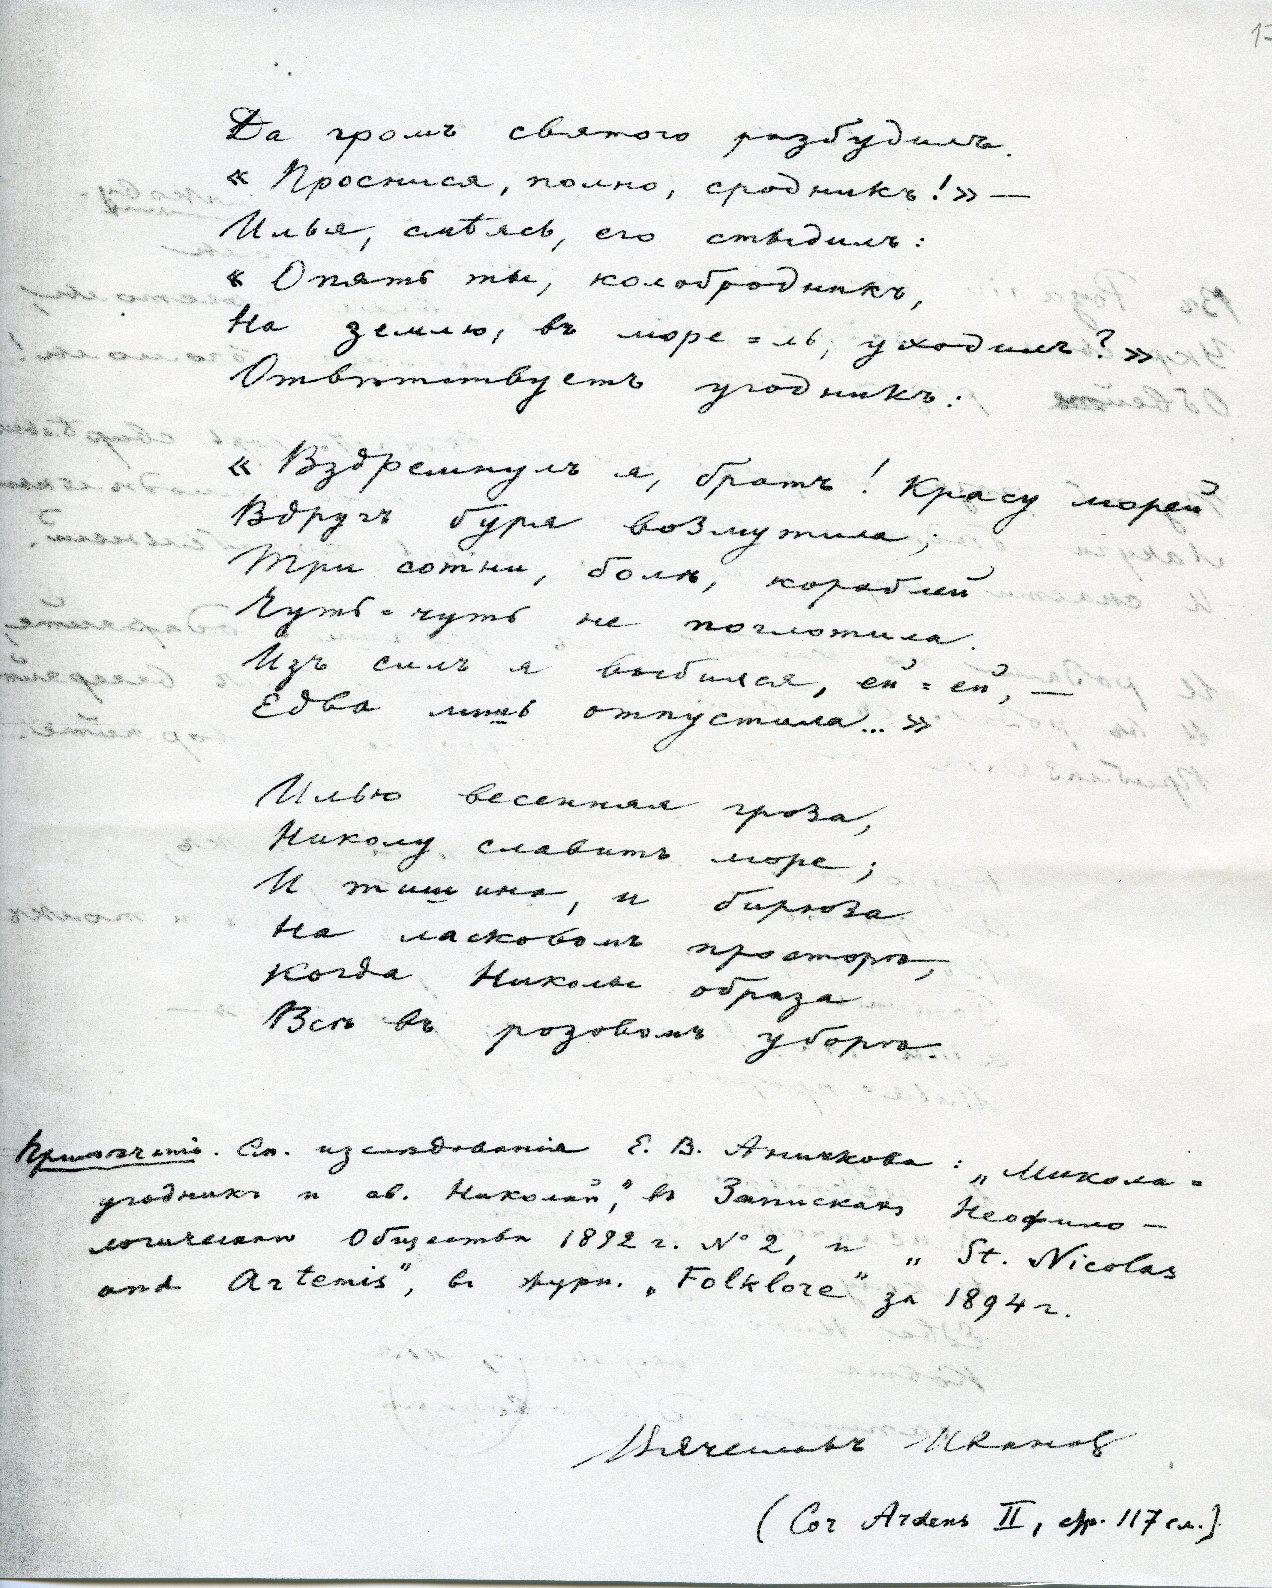 Да громъ святого разбудилъ.
« Проснися, полно, сродникъ!» —
Илья, смѣясь, его стыдилъ:
« Опять ты, колобродникъ,
На землю, въ море-ль, уходилъ?»
Отвѣтствуетъ угодникъ:
« Вздремнулъ я, братъ! Красу морей
Вдругъ буря возмутила;
Три сотни, болѣ, кораблей
Чуть-чуть не поглотила.
Изъ силъ я выбился, ей-ей, —
Едва лишь отпустила...»
Илью весенняя гроза,
Николу славитъ море;
И тишина, и бирюза
На ласковомъ просторѣ,
Когда Николы образа
Всѣ въ розовомъ уборѣ.
Примѣчанiе. См. изслѣдованiя Е. В. Аничкова: „Микола-
угодникъ и св. Николай", въ Запискахъ Неофило-
логическаго Общества 1892 г. № 2, и „St. Nicolas
and Artemis", въ журн. „Folklore" за 1894 г.
Вячеславъ Иванов
(Cor Ardens II, стр. 117 сл.)